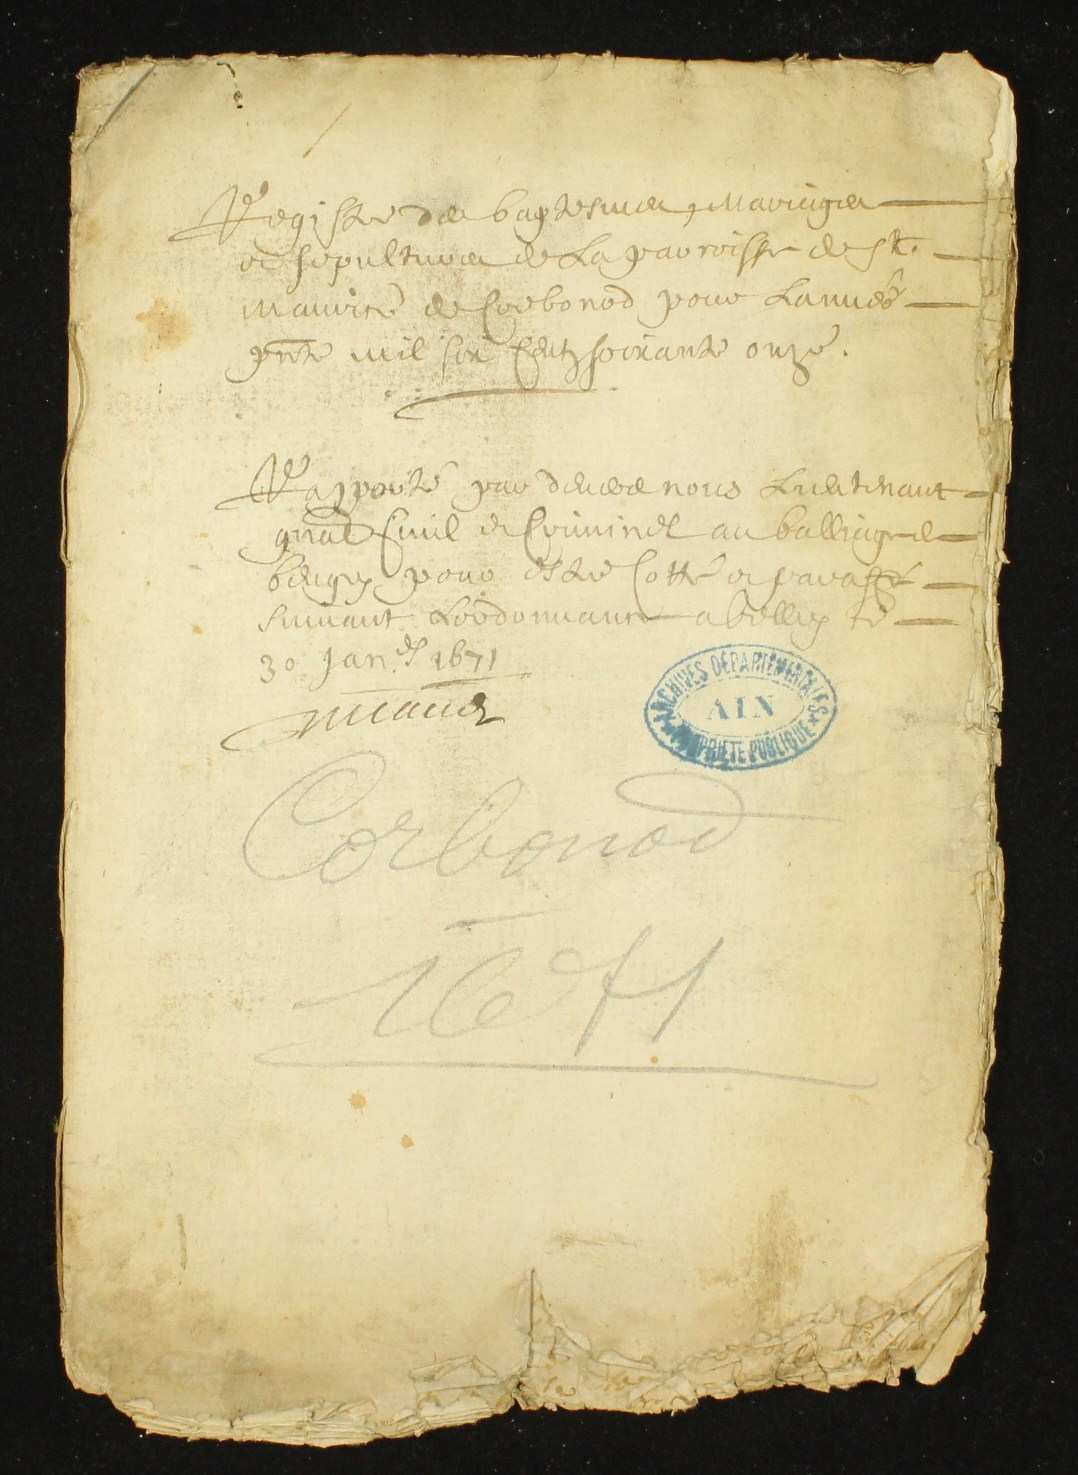 Registre des baptesmes, Mariages
et sepultures de La parroisse de St.
Maurice de Corbonod pour Lannée
pnte mil six Centz soixante onze.
Rapporté par devers nous Lieutenant
gnal Civil et Criminel au balliage de
beugey pour estre Cotté et paraffé
suivant Lordonnance a belley ce
30 Jan.er 1671
ARCHIVES DÉPARTEMENTALES
AIN
PROPRIÉTÉ PUBLIQUE
Corbonod
1671